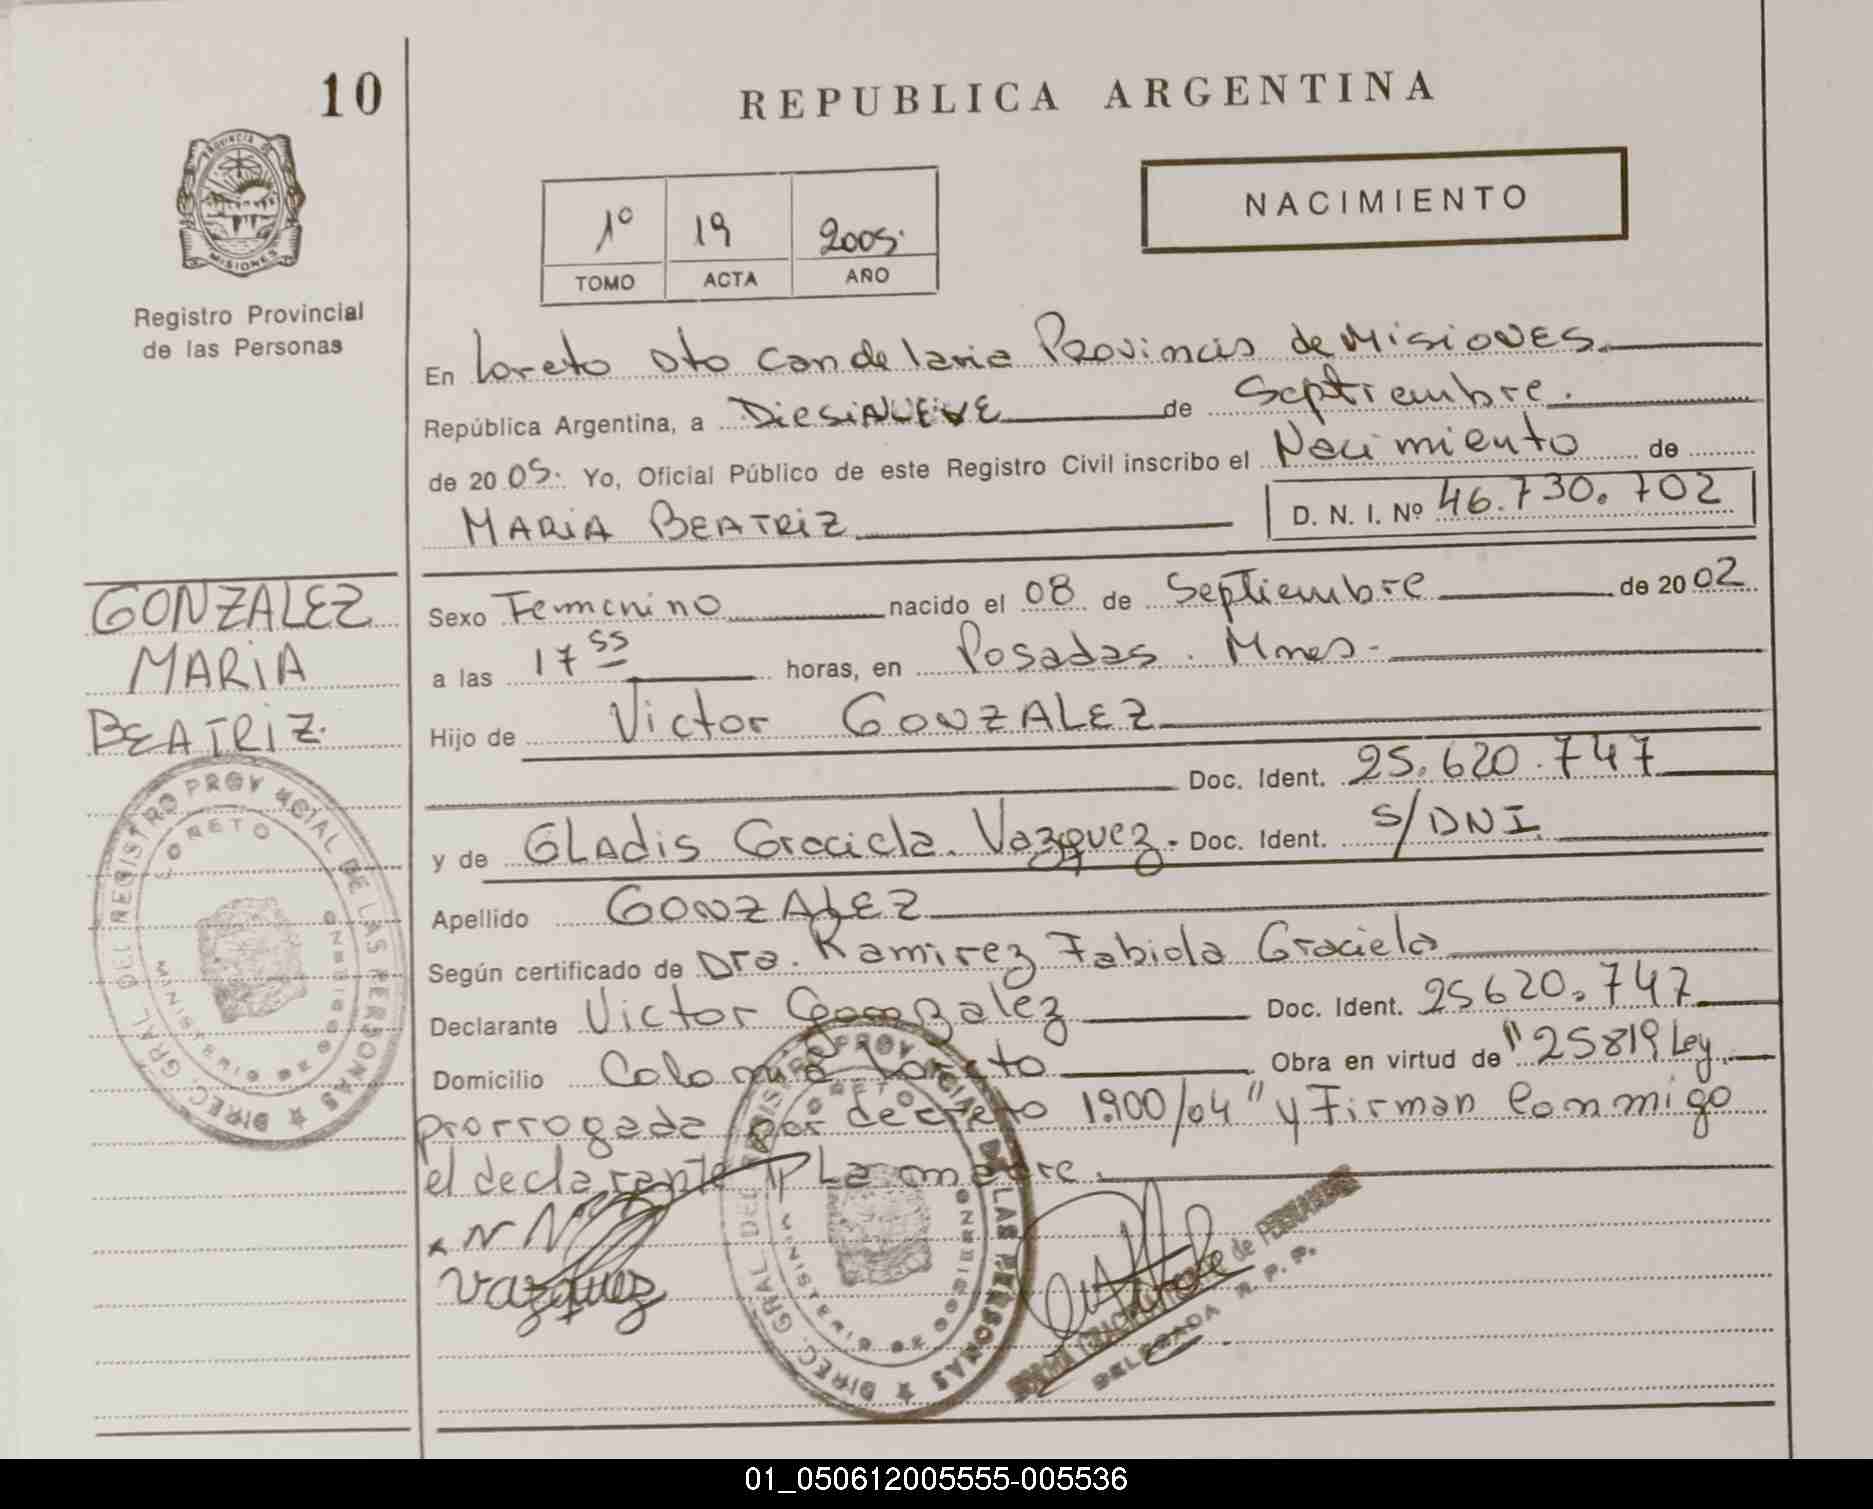 10
REPUBLICA ARGENTINA
PROVINCIA DE
MISIONES
Registro Provincial
de las Personas
1º 19 2005.
TOMO ACTA AÑO
NACIMIENTO
En Loreto Dto Candelaria Provincias de MisiONES.
República Argentina, a DiesiNUEVE de Septiembre.
de 20 05. Yo, Oficial Público de este Registro Civil inscribo el Nacimiento de
MARiA BEATRiZ D. N. I. Nº 46.730.702
GONZALEZ
MARiA
BEATRiZ.
Sexo Femenino nacido el 08 de Septiembre de 20 02
a las 17 55 horas, en Posadas. Mnes.
Hijo de Victor GONZALEZ
Doc. Ident. 25.620.747
y de GLAdis Graciela. Vazquez. Doc. Ident. S/DNI.
Apellido GONZALEZ
Según certificado de Dra. Ramirez Fabiola Graciela
Declarante Victor Gonzalez Doc. Ident. 25620.747
Domicilio Colonia Loreto Obra en virtud de "25819 Ley.
prorrogada por decreto 1.900/04" y Firman Conmigo
el declarante y La madre.
Vazquez
DIREC. GRAL DEL REGISTRO PROVINCIAL DE LAS PERSONAS
LORETO
MISIONES
DIREC. GRAL DEL REGISTRO PROVINCIAL DE LAS PERSONAS
de
DELEGADA R. P. P.
01_050612005555-005536